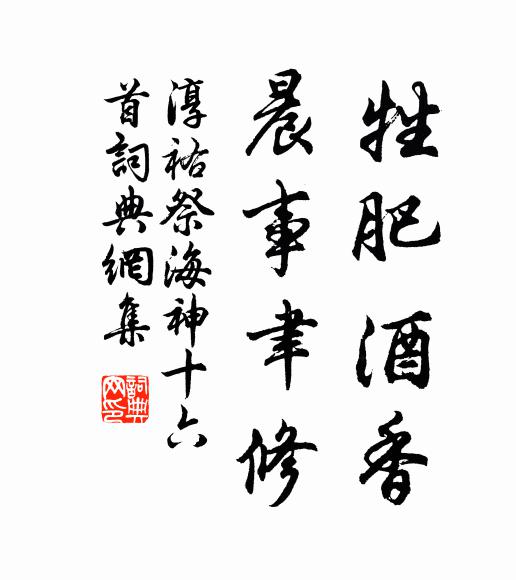 牲肥酒香
晨事聿修
淳祐祭海神十六
首詞典網集
詞典
网印